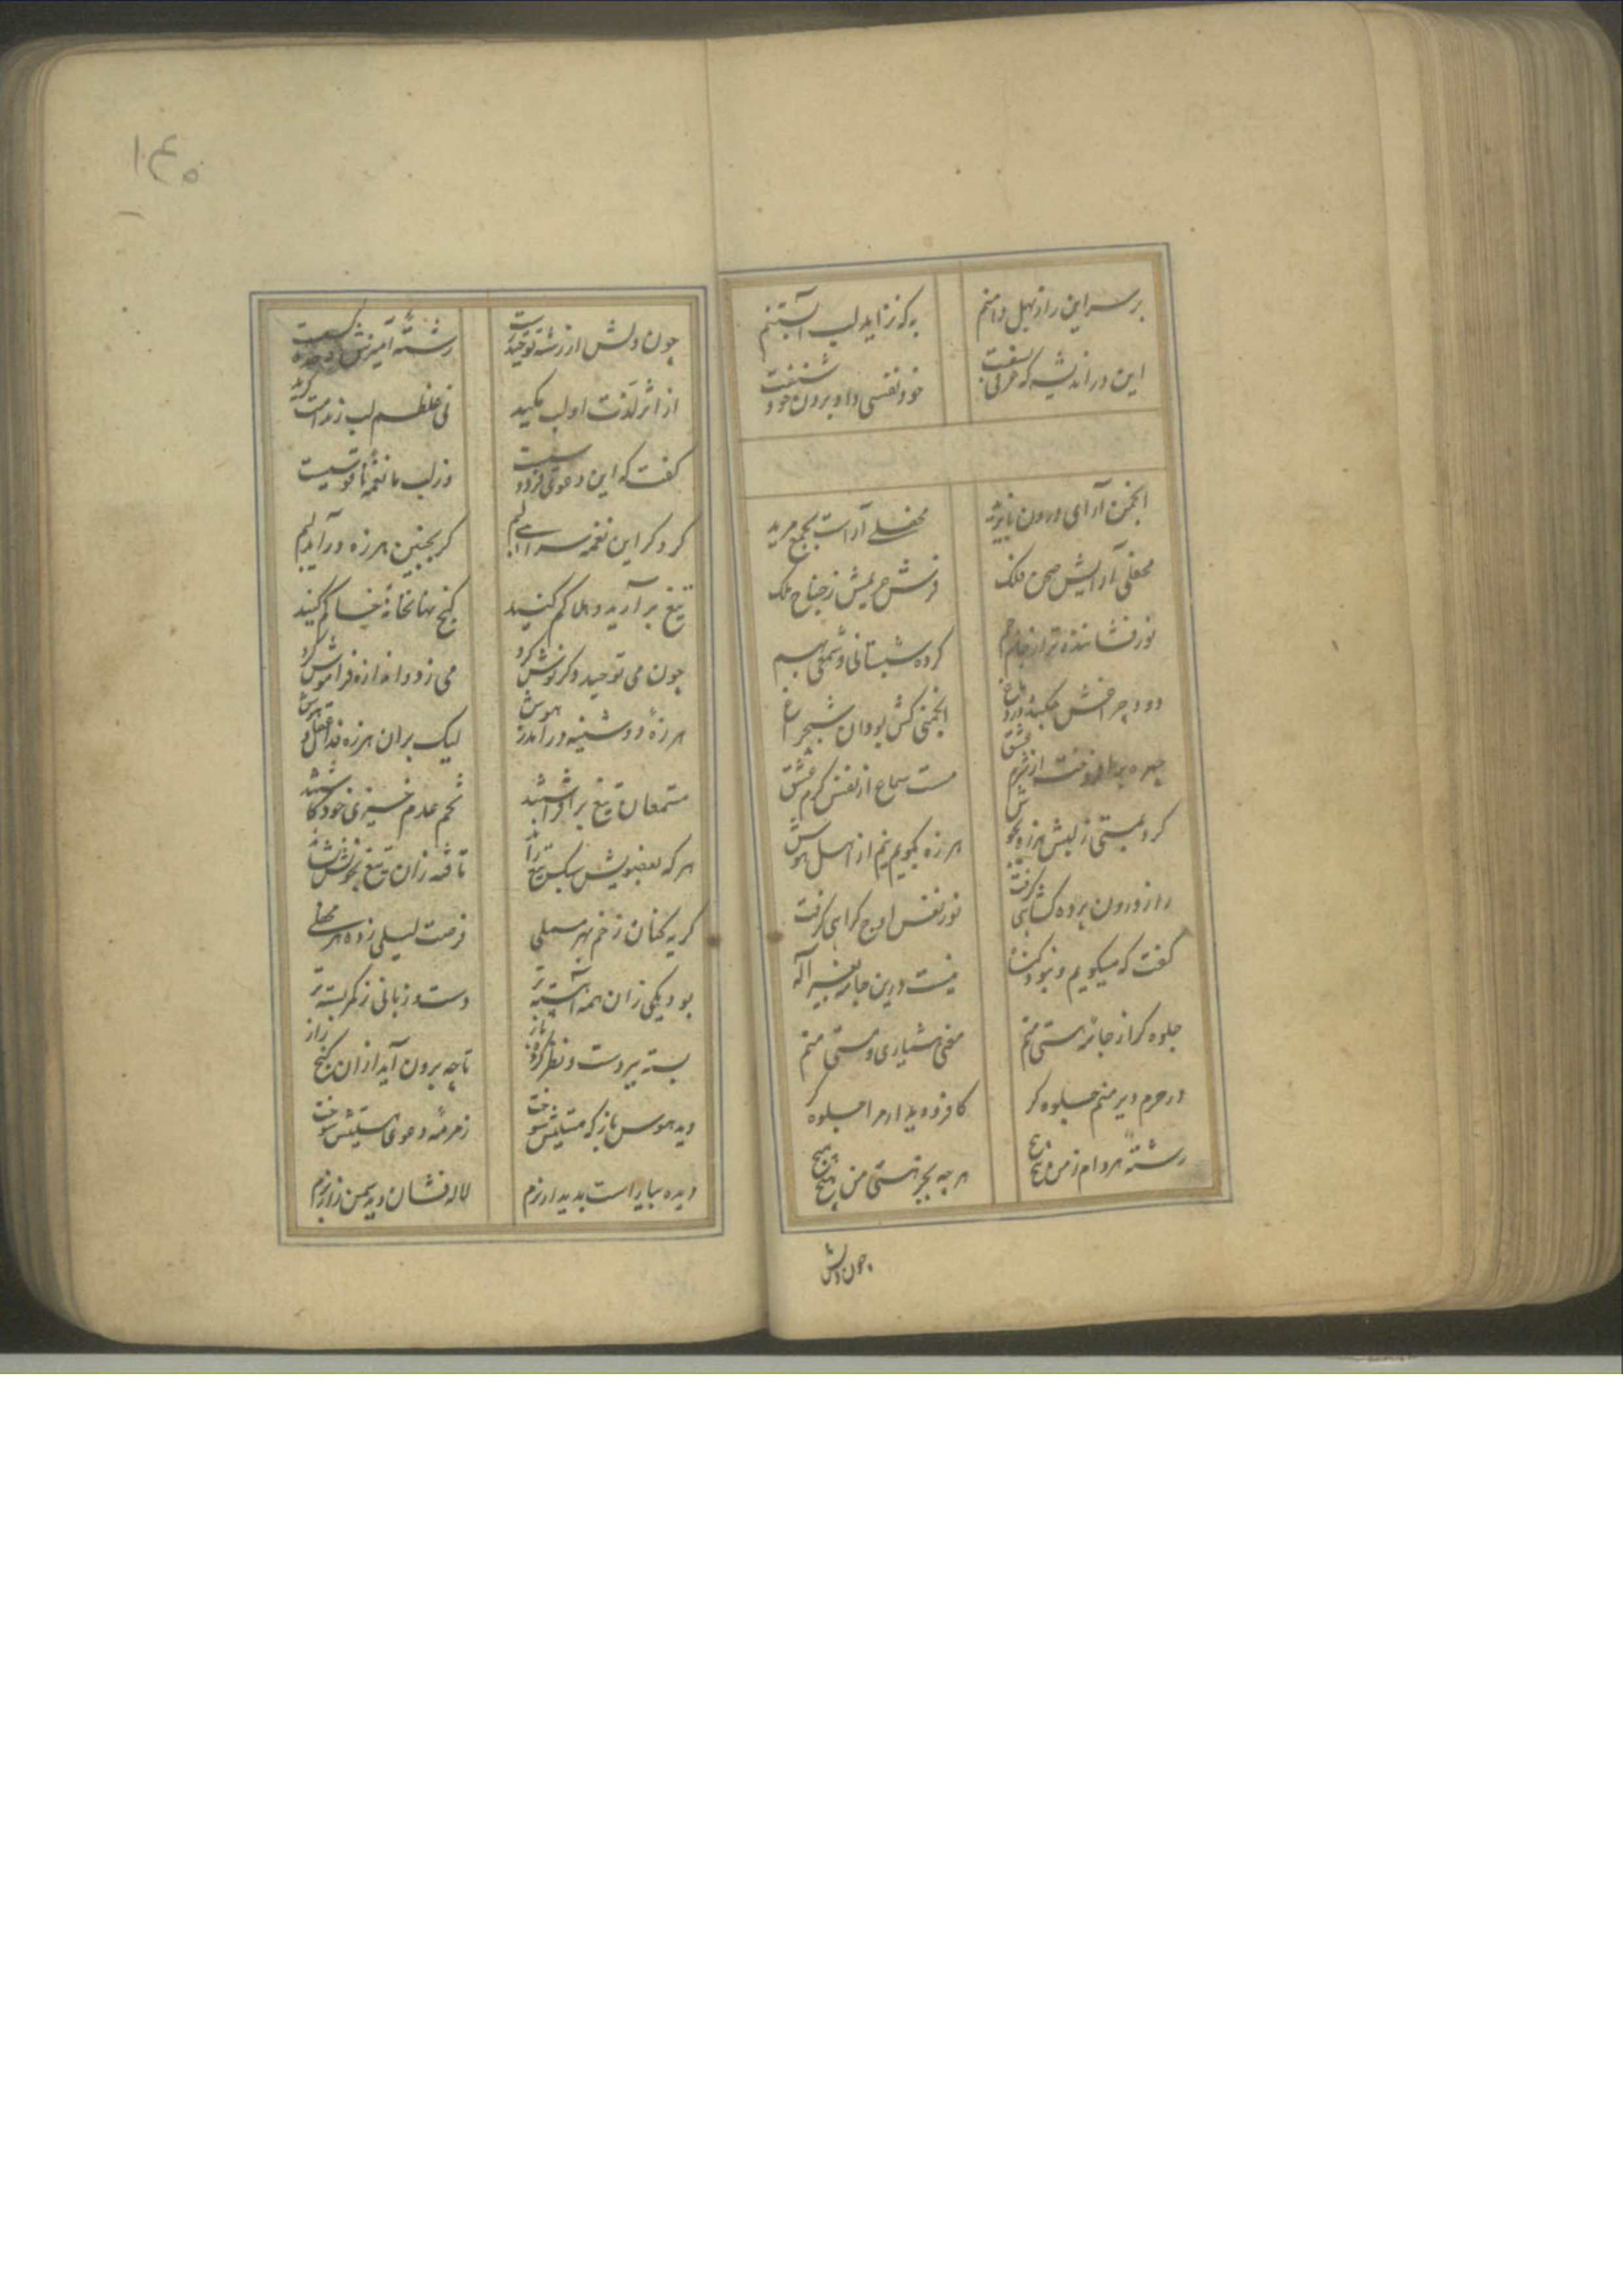 بر سر این راز بهل دامنم
به که نزاید لب آبستنم
این در اندیشه که عرفی بسفت
خود نفسی داد و برون خود شنفت
انجمن آرای درون بایزید
محفلی آراست بجمع مرید
محفلی آرایش صحن فلک
فرش حریمش ز جناح ملک
نور فشاننده تر از جام جم
کرده شبستانی و شمعی بهم
دود چراغش
انجمنی کش بود آن شبچراغ
چهره برافروخت از شرم عشق
مست سماع از نفس کرم عشق
کرد مستی ز لبش هرزه جوش
هرزه بگویم نیم از اهل هوش
راز درون پرده کشایی کرفت
نور نفس اوج کرایی کرفت
گفت که میگویم و نبود گناه
نیست درین جامه بغیر اله
جلوه گر از جامه هستی منم
معنی هشیاری و مستی منم
در حرم و دیر منم جلوه گر
کافر و دیندار مرا جلوه گر
رشته هر دام ز من پیچ پیچ
هر چه بجز هستی من هیچ هیچ
چون دلش
۱۴۵
چون دلش از رشته توحید رست
رشته آمیزش
از اثر لذت او لب مکید
نی غلطم لب ز ندامت گزید
گفت که این دعوی فر
وز لب ما نغمه ناقوسیت
کر دکر این نغمه سراید لبم
کر بچنین هرزه درآید لبم
تیغ برآرید و هلاکم کنید
کنج نهانخانه خاکم کنید
چون می توحید دکر نوش کرد
می زد و اندازه فراموش کرد
هرزه دوشینه درآمد بهوش
لیک بران هرزه
مستمعان تیغ برافراشتند
تخم عدم خیزی خود کاشتند
هر که بعضویش سبک تیغ راند
تافته زان تیغ بخونش نشاند
کریه کنان زخم بهر بسملی
فرصت لیلی زده هر محملی
بود یکی زان همه آهسته تر
دست و زبانی ز کمر بسته تر
بسته بر و دست و نظر کرده باز
تا چه برون آید ازان کنج راز
دید هوس باز که مستیش سوخت
زمزمه دعوی هستیش سوخت
دیده بیاراست بدیدار بزم
لاله فشان دید سمن زار بزم